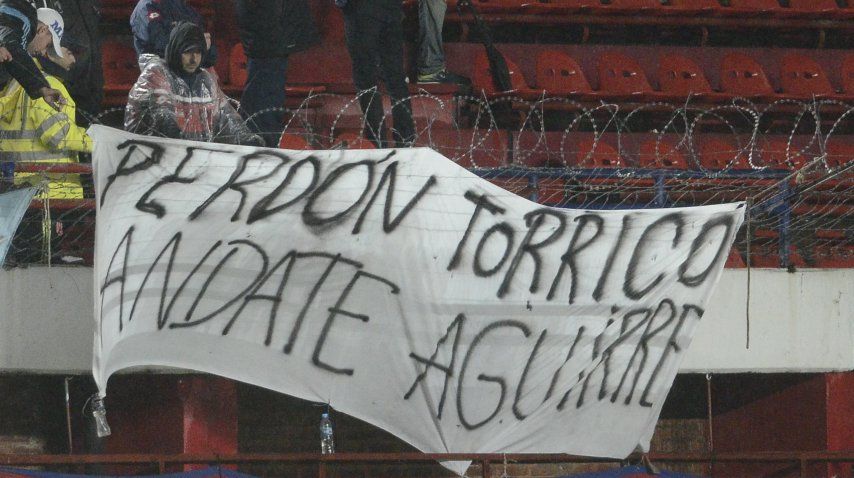 PERDÓN TORRICO
ANDATE AGUIRRE